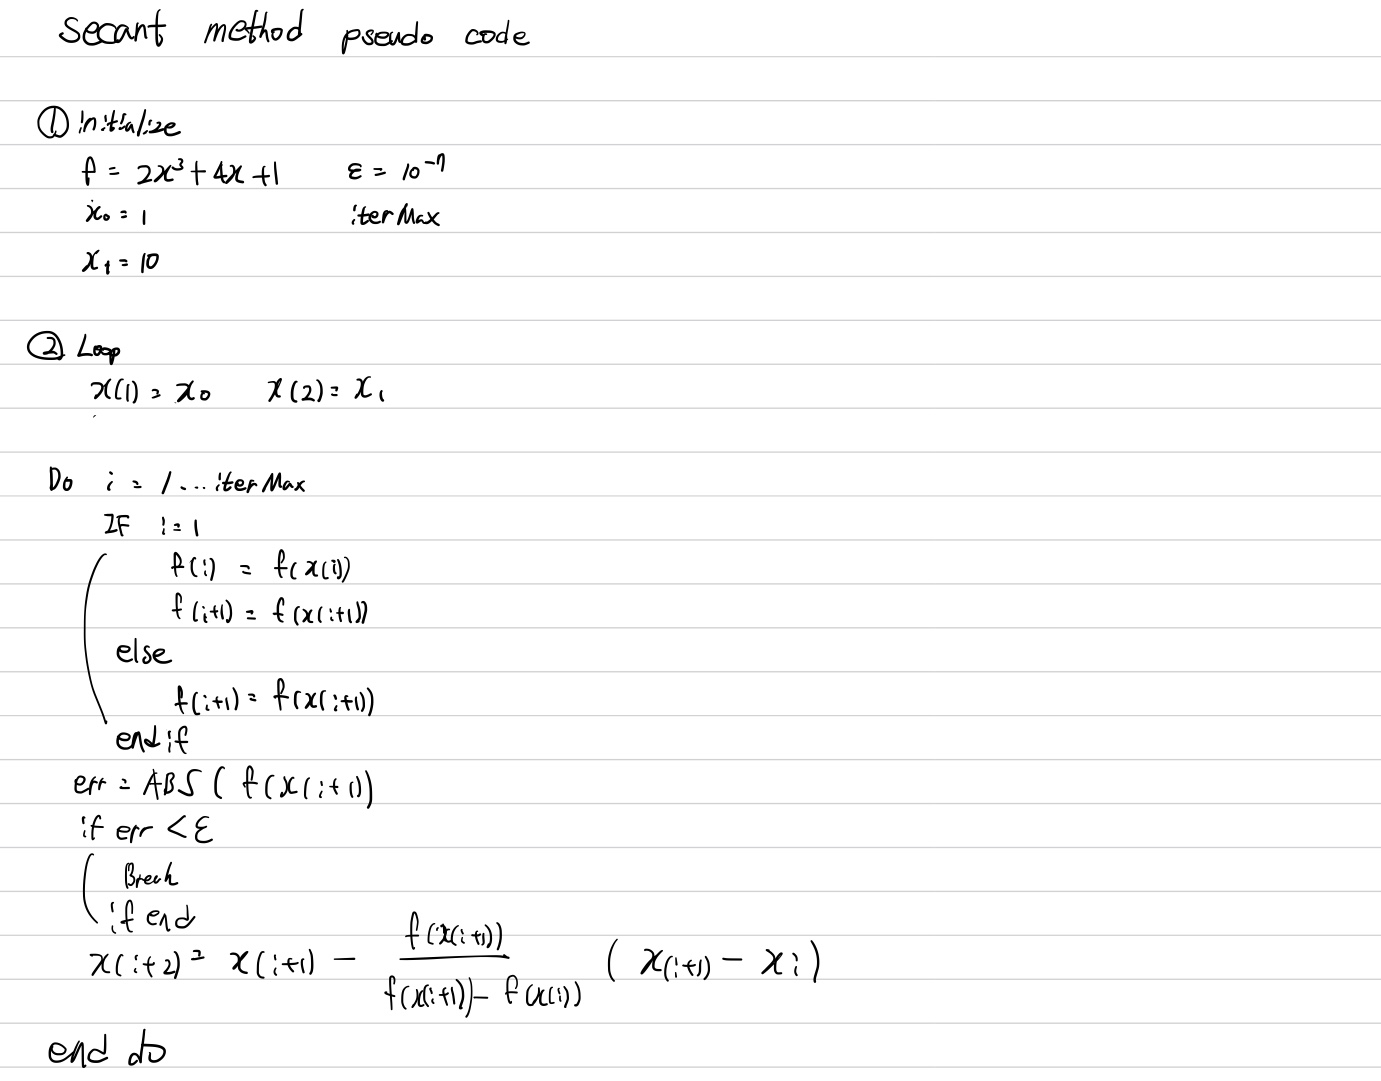 secant method pseudo code
① initialize
f = 2x³ + 4x + 1 ε = 10⁻⁷
x₀ = 1 iterMax
x₁ = 10
② Loop
x(1) = x₀ x(2) = x₁
Do i = 1 ... iterMax
IF i = 1
f(i) = f(x(i))
f(i+1) = f(x(i+1))
else
f(i+1) = f(x(i+1))
end if
err = ABS ( f(x(i+1))
if err < ε
Break
if end
x(i+2) = x(i+1) - f(x(i+1)) / f(x(i+1)) - f(x(i)) ( x(i+1) - xi )
end do